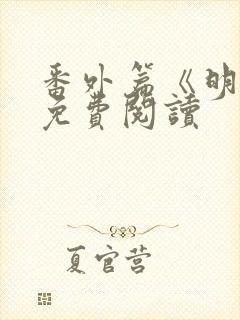 番外篇《明
免費閱讀
夏官营